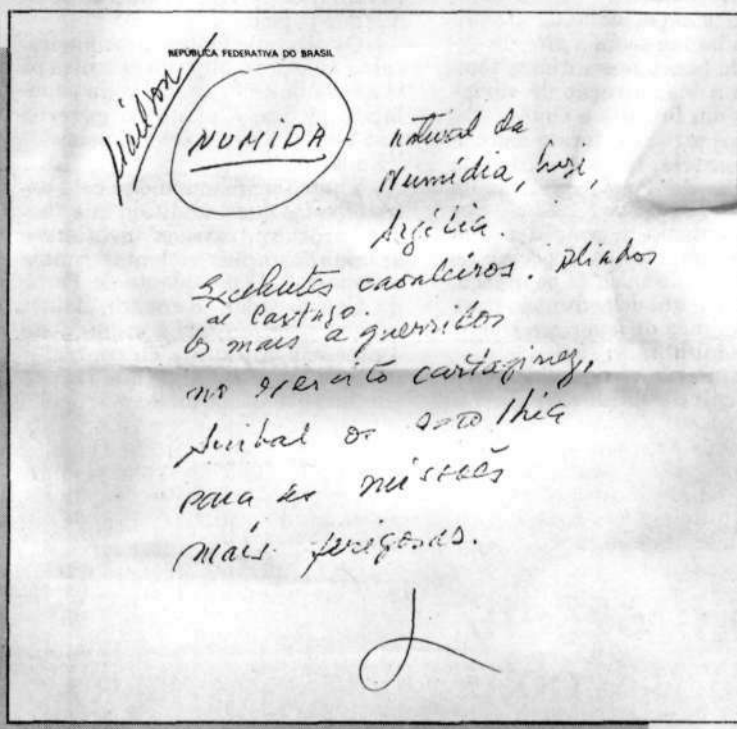 REPÚBLICA FEDERATIVA DO BRASIL
Maílson
NUMIDA - natural da
Numídia, hoje,
Argélia.
Excelentes cavaleiros. Aliados
de Cartago.
Os mais aguerridos
no exercito cartaginês,
Anibal os escolhia
para as missões
mais perigosas.